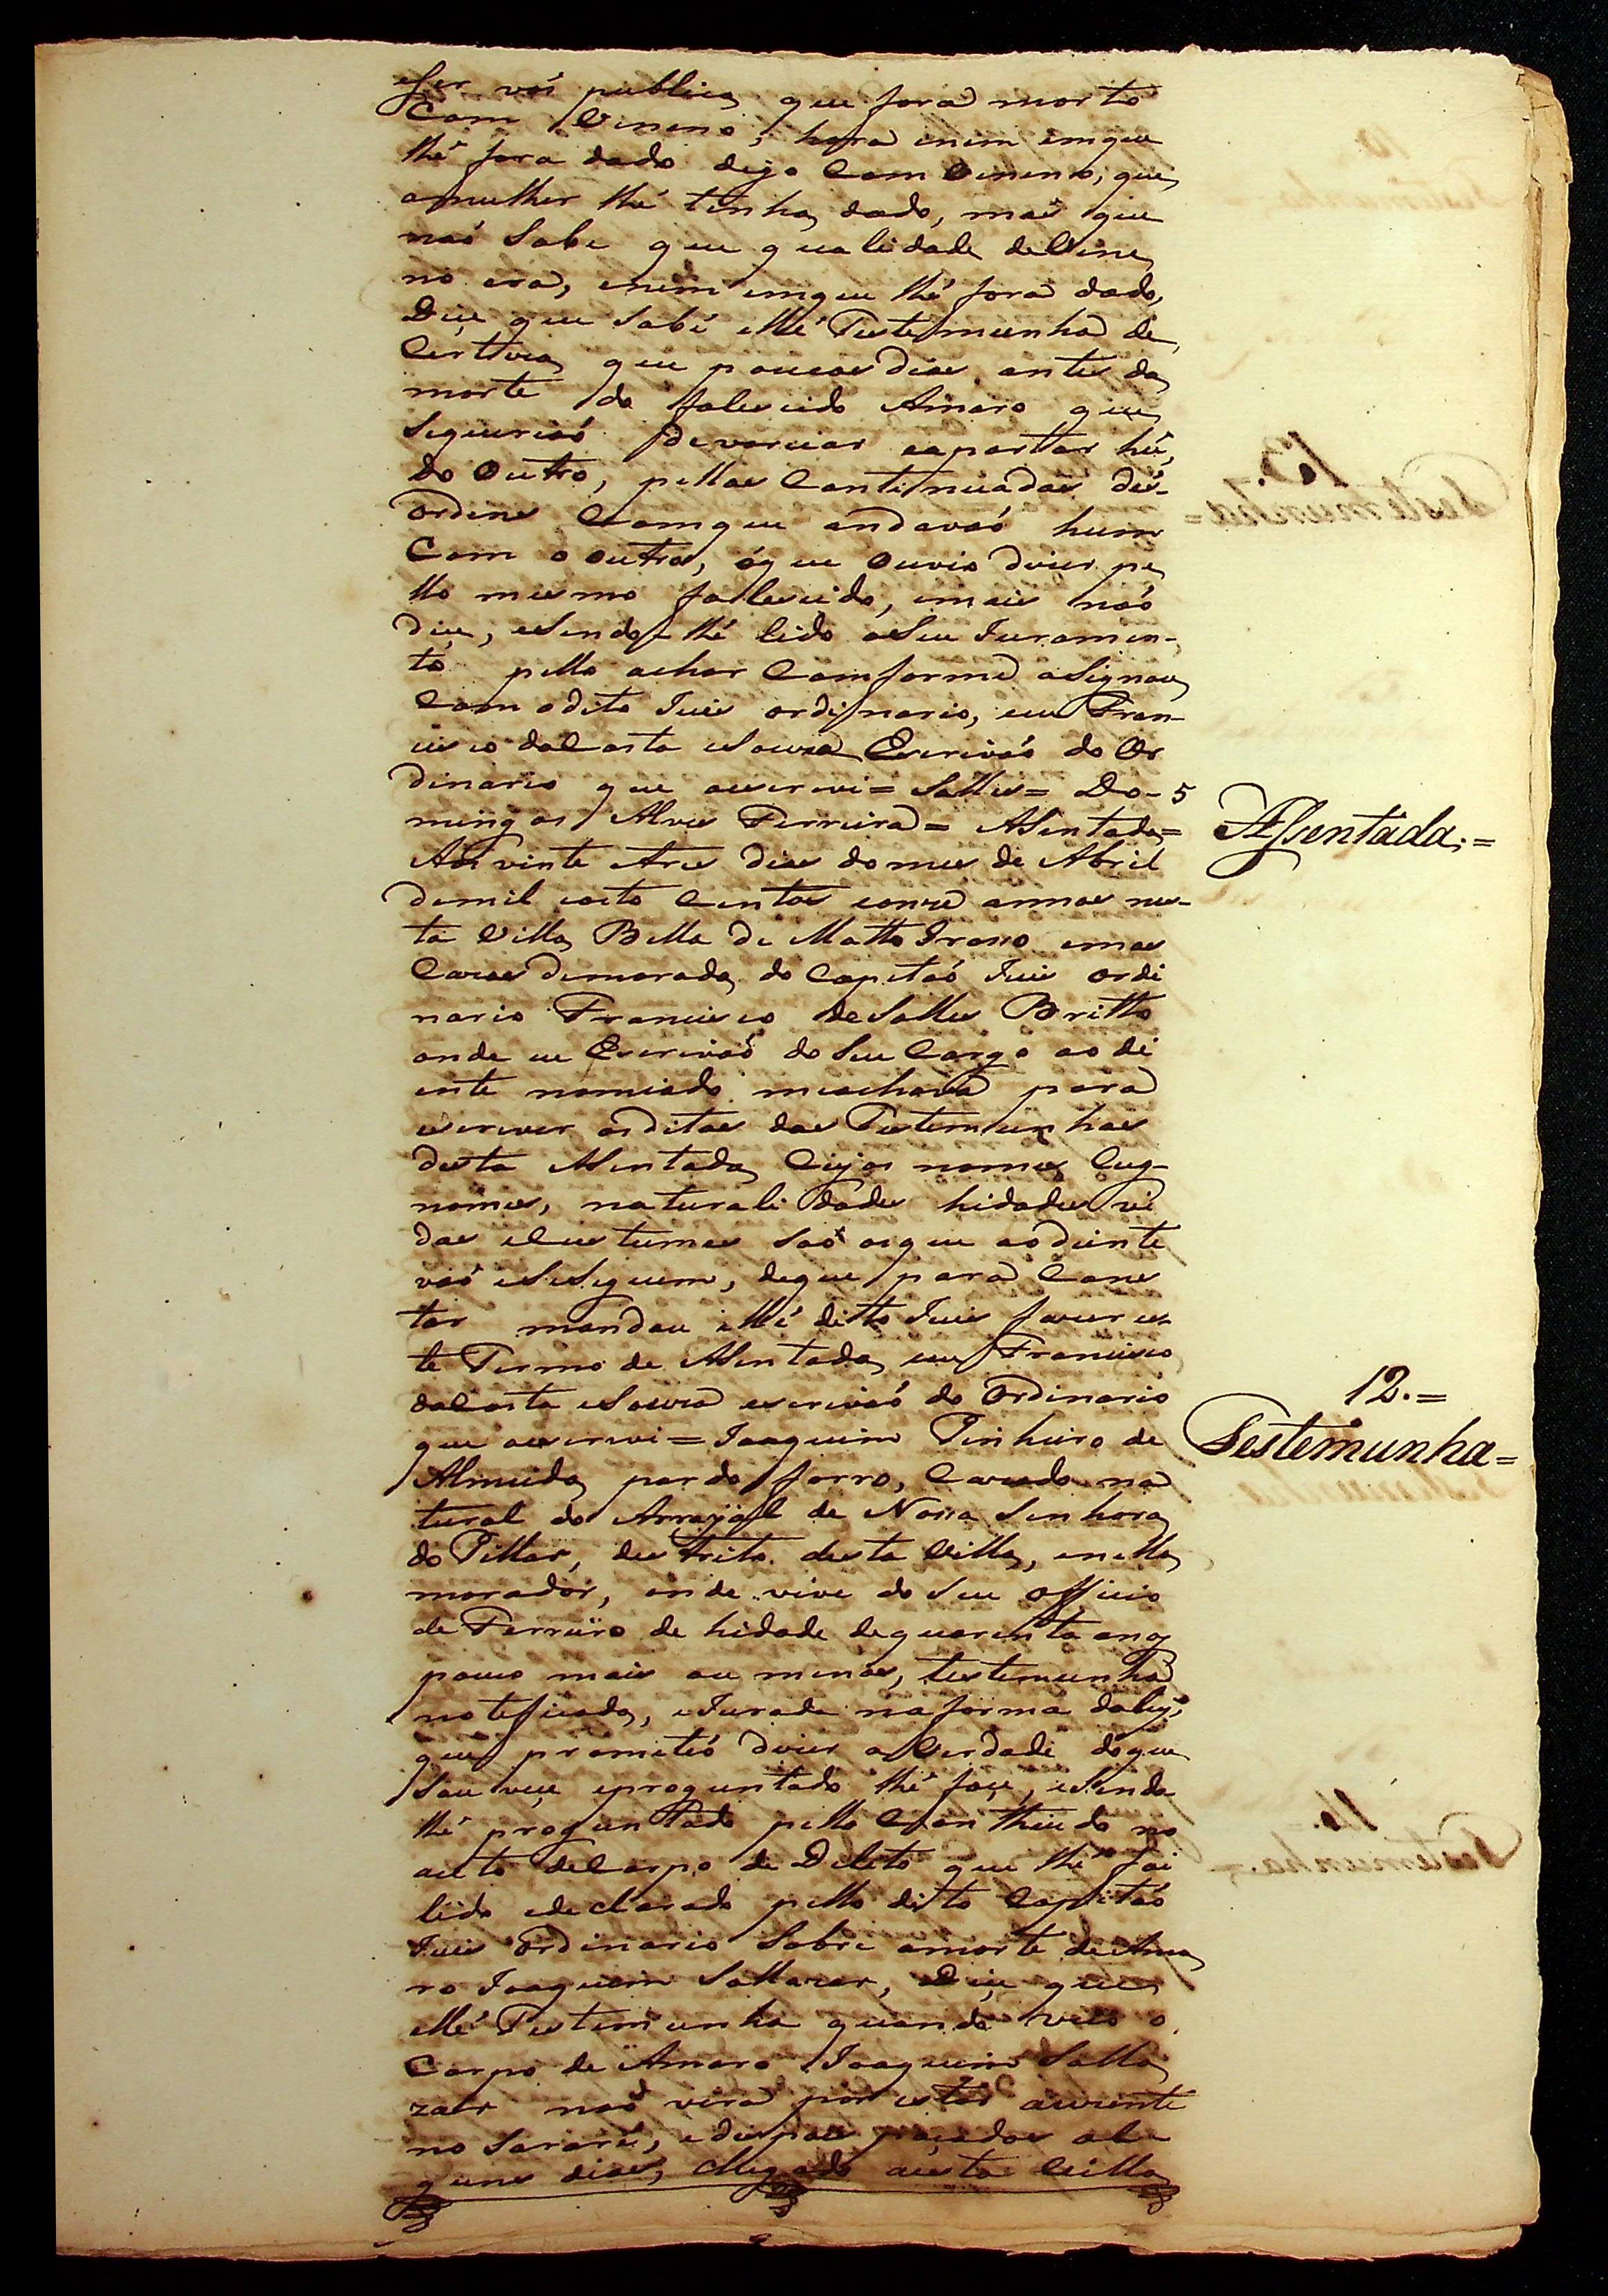 Ser vós publica que fora morto
Com Veneno, hora enem emque
lhé fora dado digo Com Veneno, que
amulher lhé tinha dado, mas que
naó Sabe que qualidade deVene
no era, enem emque lhé fora dado,
Diçe que Sabé ellé Testemunha de
Certeza que poucos dias antes da
morte do falescido Amaro que
Sequeriaó devorciar eapartar hũ
do Outro, pellas Continuadas dis-
ordens Comque andavaó hum
Com o outro, óque Ouvio dizer pe
llo mesmo falescido, emais naó
diçe, eSendo-lhé lido oSeu Juramen-
to pello achar Comforme aSignou
Com odito Juis ordinario, eu Fran-
cisco daCosta eSouza Escrivaó do Or
dinario que oescrevi = Salles = Do-
mingos Alves Ferreira = ASentada =
Aos vinte etres dias domes de Abril
demil eoito Centos eonze annos nes-
ta Villa Bella de Matto Grosso emas
Cazas demorada do Capitaó Juis ordi
nario Francisco deSalles Britto
onde eu Escrivaó do Seu Cargo ao di
ente nomiado meachava para
escrever asditas das Testemunhas
desta ASentada Cujos nomes Cug-
nomes, naturalidades hidades vi
das eCustumes Saó osque aodiente
vaó eSeSeguem, deque para Cons
tar mandou ellé dito Juis fazer es-
te Termo de ASentada eu Francisco
daCosta eSouza escrivaó do Ordinario
que oescrevi = Joaquim Pinheiro de
Almeida pardo forro, Cazado na
tural do Arrayal de Nossa Senhora
do Pillar, destrito desta Villa, enella
morador, onde vive do Seu officio
de Ferreiro de hidade dequarenta anos
pouco mais ou menos, testemunha
noteficada, eJurada naforma daley,
que prometeó dizer aVerdade doque
Souveçe eproguntado lhé foçe, eSendo
lhé proguntado pello Conthiudo no
auto deCorpo de Delito que lhé foi
lido edeclarado pello dito Capitaó
Juis ordinario Sobre amorte deAma
ro Joaquim Sallazar, Diçe que
ellé Testemunha quando veio o
Corpo de Amaro Joaquim Salla
zar naó vira por estar auzente
no Sararé, edespois paçados al-
guns dias, chegado aesta Villa
5
ASsentada =
12. =
Testemunha =